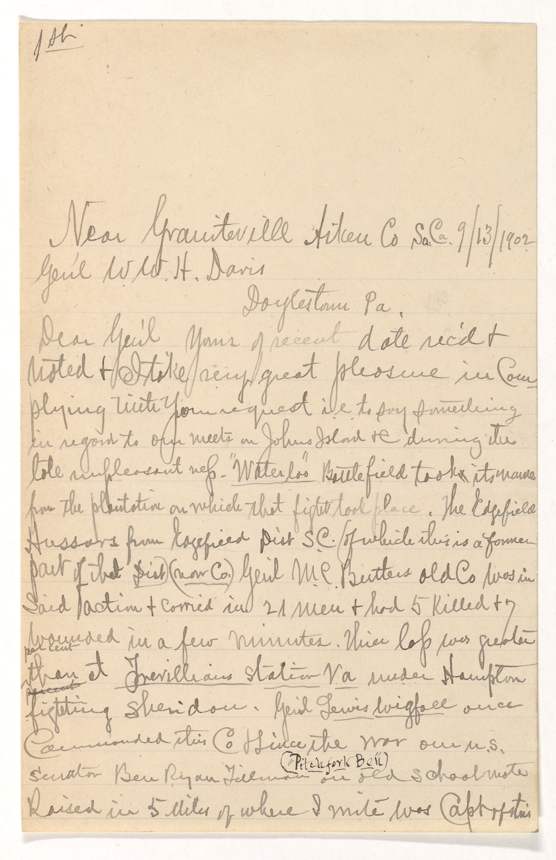 1st
Near Graniteville Aiken Co So.Ca. 9/13/1902
Gen'l W.W.H. Davis
Doylestown Pa.
Dear Gen'l Yours of recent date rec'd &
noted & I take very great pleasure in Com-
plying with your request i.e. to say something
in regard to our meets on Johns Island &c during the
late unpleasantness - "Waterloo" Battlefield took its name
from the plantation on which that fight took place. The Edgefield
Hussars from Edgefield Dist S.C. (of which this is a former
part of that Dist) (now Co) Gen'l M.C. Butlers old Co was in
said action & carried in 21 men & had 5 killed & 7
wounded in a few minutes. Their loss was greater
per cent
than at Trevillians Station Va under Hampton
fighting Sheridan. Gen'l Lewis Wigfall once
Commanded this Co & since the war our U.S.
(Pitchfork Ben)
Senator Ben Ryan Tillman an old schoolmate
Raised in 5 Miles of where I write was Capt of this